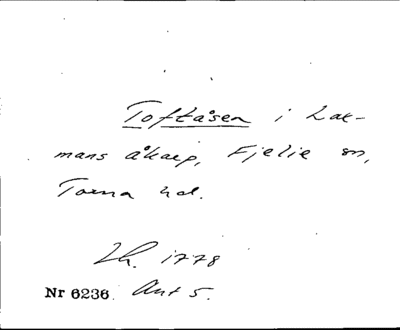 Toftåsen i Lack-
mans åkarp, Fjelie sn,
Torna hd.
Lh. 1778
Nr 6236. Akt 5.